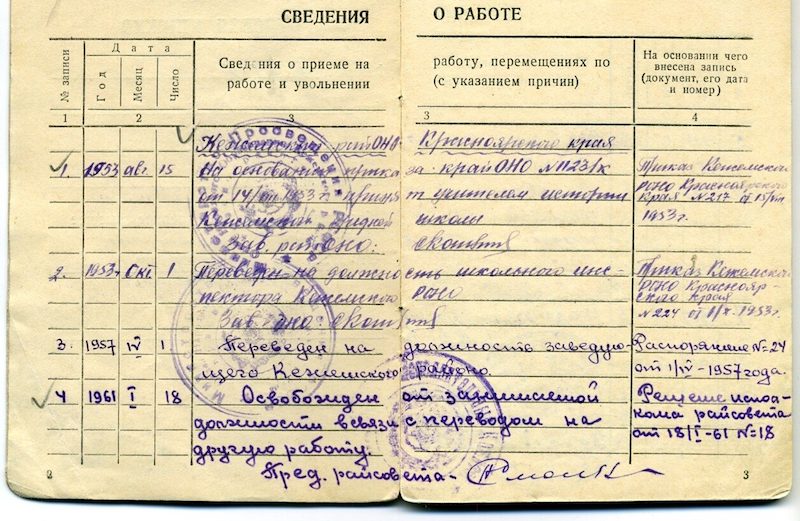 СВЕДЕНИЯ О РАБОТЕ
№ записи
Дата
Год
Месяц
Число
Сведения о приеме на работу, перемещениях по
работе и увольнении (с указанием причин)
На основании чего
внесена запись
(документ, его дата
и номер)
1 2 3 3 4
Кежемский райОНО Красноярского края
1. 1953 авг. 15 На основании приказа крайОНО №
от 1953 г. принят учителем истории
Кежемской средней школы
Зав. районо:
Приказ Кежемского
РОНО Красноярского
края № 217 от 15/VIII
1953 г.
2. 1953 окт 1 Переведен на должность школьного инс-
пектора Кежемского РОНО
Зав. роно:
Приказ Кежемского
РОНО Краснояр-
ского края
№ 224 от 1/X-1953 г.
3. 1957 IV 1 Переведен на должность заведую-
щего Кежемского районо.
Распоряжение №=24
от 1/IV-1957 года.
4 1961 I 18 Освобожден от занимаемой
должности в связи с переводом на
другую работу.
Пред. райсовета-
Решение испол-
кома райсовета
от 18/I-61 №=18
2 3